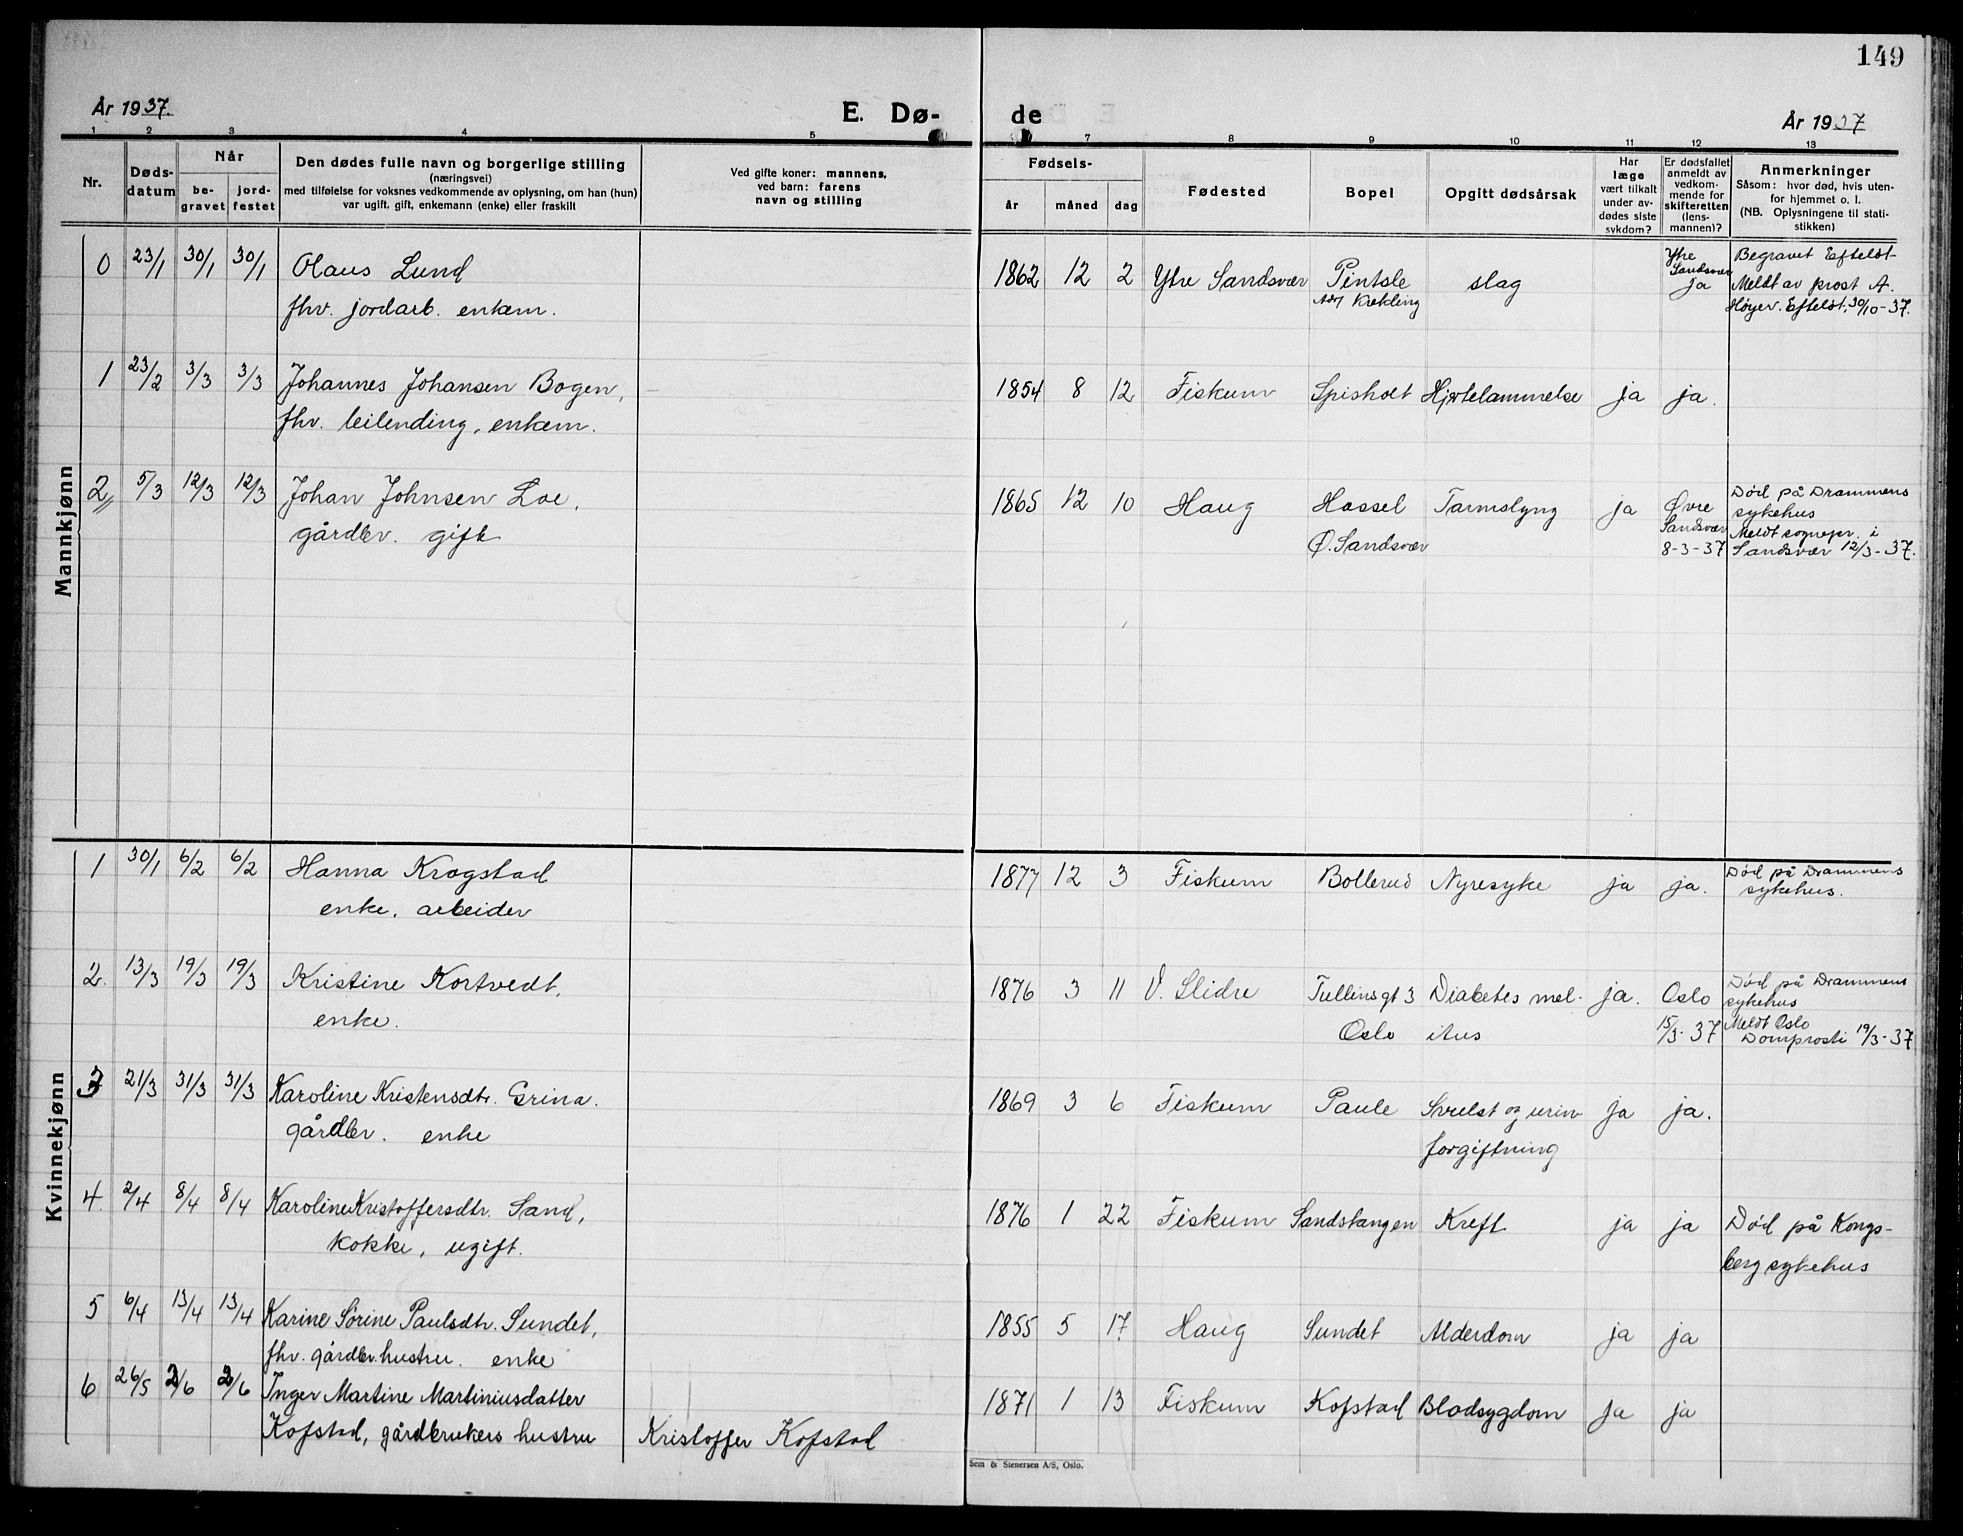 149
År 1937.
E. Dø-
de
År 1937
1 2 3 4 5 7 8 9 10 11 12 13
Nr.
Døds-
datum
Når
be-
gravet
jord-
festet
Den dødes fulle navn og borgerlige stilling
(næringsvei)
med tilføielse for voksnes vedkommende av oplysning, om han (hun)
var ugift, gift, enkemann (enke) eller fraskilt
Ved gifte koner: mannens,
ved barn: farens
navn og stilling
Fødsels-
år måned dag
Fødested
Bopel
Opgitt dødsårsak
Har
læge
vært tilkalt
under av-
dødes siste
sykdom?
Er dødsfallet
anmeldt av
vedkom-
mende for
skifteretten
(lens-
mannen)?
Anmerkninger
Såsom: hvor død, hvis uten-
for hjemmet o. l.
(NB. Oplysningene til stati-
stikken)
Mannkjønn
0 23/1 30/1 30/1 Olaus Lund
fhv. jordarb. enkem.
1862 12 2 Ytre Sandsvær Pintsle
slag
Ytre
Sandsvær
ja
Begravet Efteløt-
Meldt av prost A.
Høyer. Efteløt. 30/10-37.
1 23/2 3/3 3/3 Johannes Johansen Bogen,
fhv. leilending, enkem.
1854 8 12 Fiskum Spisholt Hjertelammelse ja ja.
2 5/3 12/3 12/3 Johan Johnsen Loe,
gårdbr. gift
1865 12 10 Haug Hassel Tarmslyng ja Øvre
Ø. Sandsvær
Sandsvær
8-3-37
Død på Drammens
sykehus
Meldt sognepr. i
Sandsvær 12/3-37.
Kvinnekjønn
1 30/1 6/2 6/2 Hanna Krogstad
enke, arbeider
1877 12 3 Fiskum Bollerud Nyresyke ja ja.
Død på Drammens
sykehus.
2. 13/3 19/3 19/3 Kristine Kortvedt,
enke.
1876 3 11 V. Slidre Tullinsgt 3 Diabetes mel- ja. Oslo
Oslo itus 15/3-37
Død på Drammens
sykehus
Meldt Oslo
Domprosti 19/3-37
3 21/3 31/3 31/3 Karoline Kristensdtr. Grina.
gårdbr. enke
1869 3 6 Fiskum Paule Svulst og urin- ja ja.
forgiftning
4. 2/4 8/4 8/4 Karoline Kristoffersdtr. Sand,
kokke, ugift.
1876 1 22 Fiskum Sandstangen Kreft ja ja
Død på Kongs-
berg sykehus
5 6/4 13/4 13/4 Karine Sørine Paulsdtr. Sundet,
fhv. gårdbr. hustru. enke
1855 5 17 Haug Sundet Alderdom ja ja
6 26/5 2/6 2/6 Inger Martine Martiniusdatter
Kofstad, gårdbrukers hustru Kristoffer Kofstad
1871 1 13 Fiskum Kofstad Blodsygdom ja ja
Sem & Stenersen A/S, Oslo.